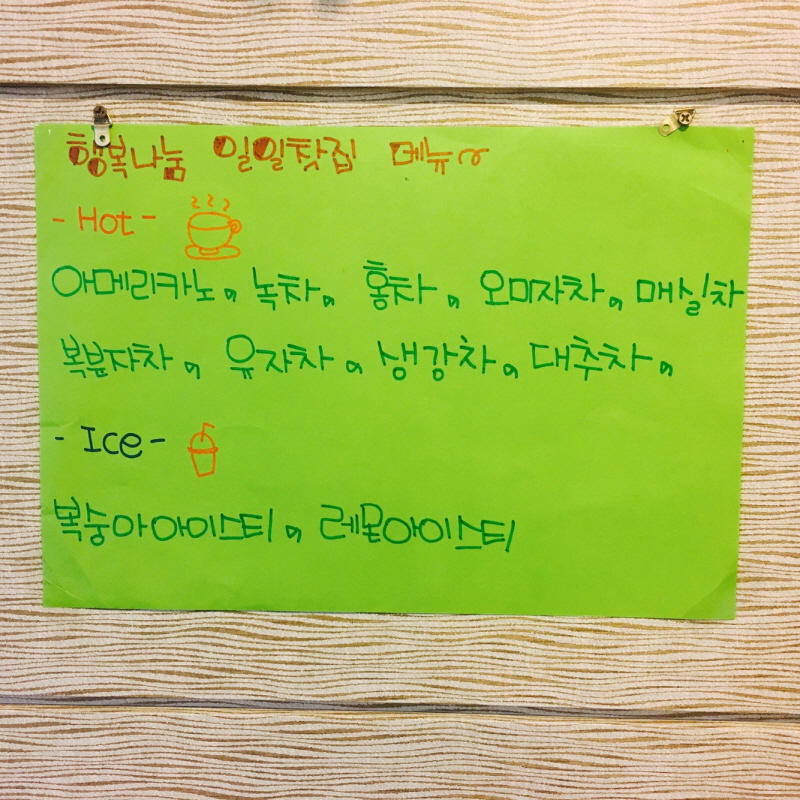 행복나눔 일일찻집 메뉴~
- Hot -
아메리카노, 녹차, 홍차, 오미자차, 매실차
복분자차, 유자차, 생강차, 대추차,
- Ice -
복숭아아이스티, 레몬아이스티